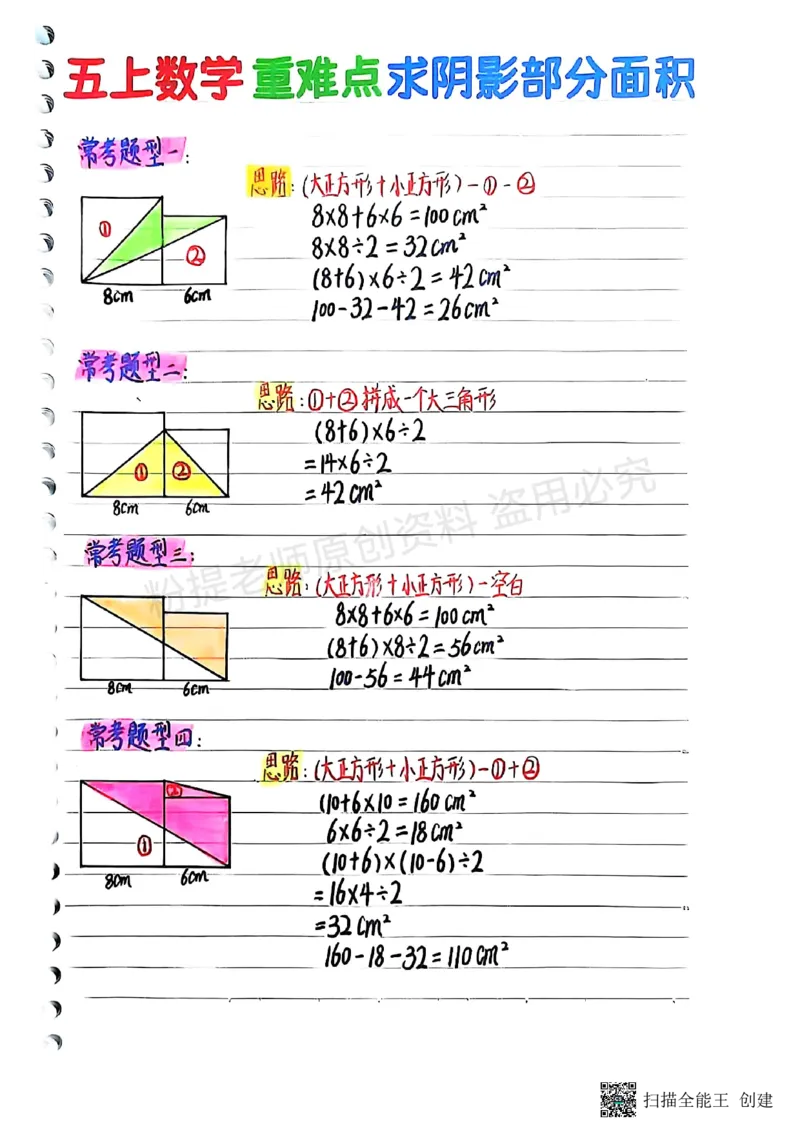 五上数学 重难点 求阴影部分面积
常考题型一:
思路:(大正方形+小正方形)-①-②
8×8+6×6=100cm²
8×8÷2=32cm²
(8+6)×6÷2=42cm²
100-32-42=26cm²
①
②
8cm 6cm
常考题型二:
思路:①+②拼成一个大三角形
(8+6)×6÷2
=14×6÷2
=42cm²
① ②
8cm 6cm
常考题型三:
思路:(大正方形+小正方形)-空白
8×8+6×6=100cm²
(8+6)×8÷2=56cm²
100-56=44cm²
8cm 6cm
粉提老师原创资料 盗用必究
常考题型四:
思路:(大正方形+小正方形)-①+②
(10+6×10=160cm²
6×6÷2=18cm²
(10+6)×(10-6)÷2
=16×4÷2
=32cm²
160-18-32=110cm²
②
①
8cm 6cm
扫描全能王 创建